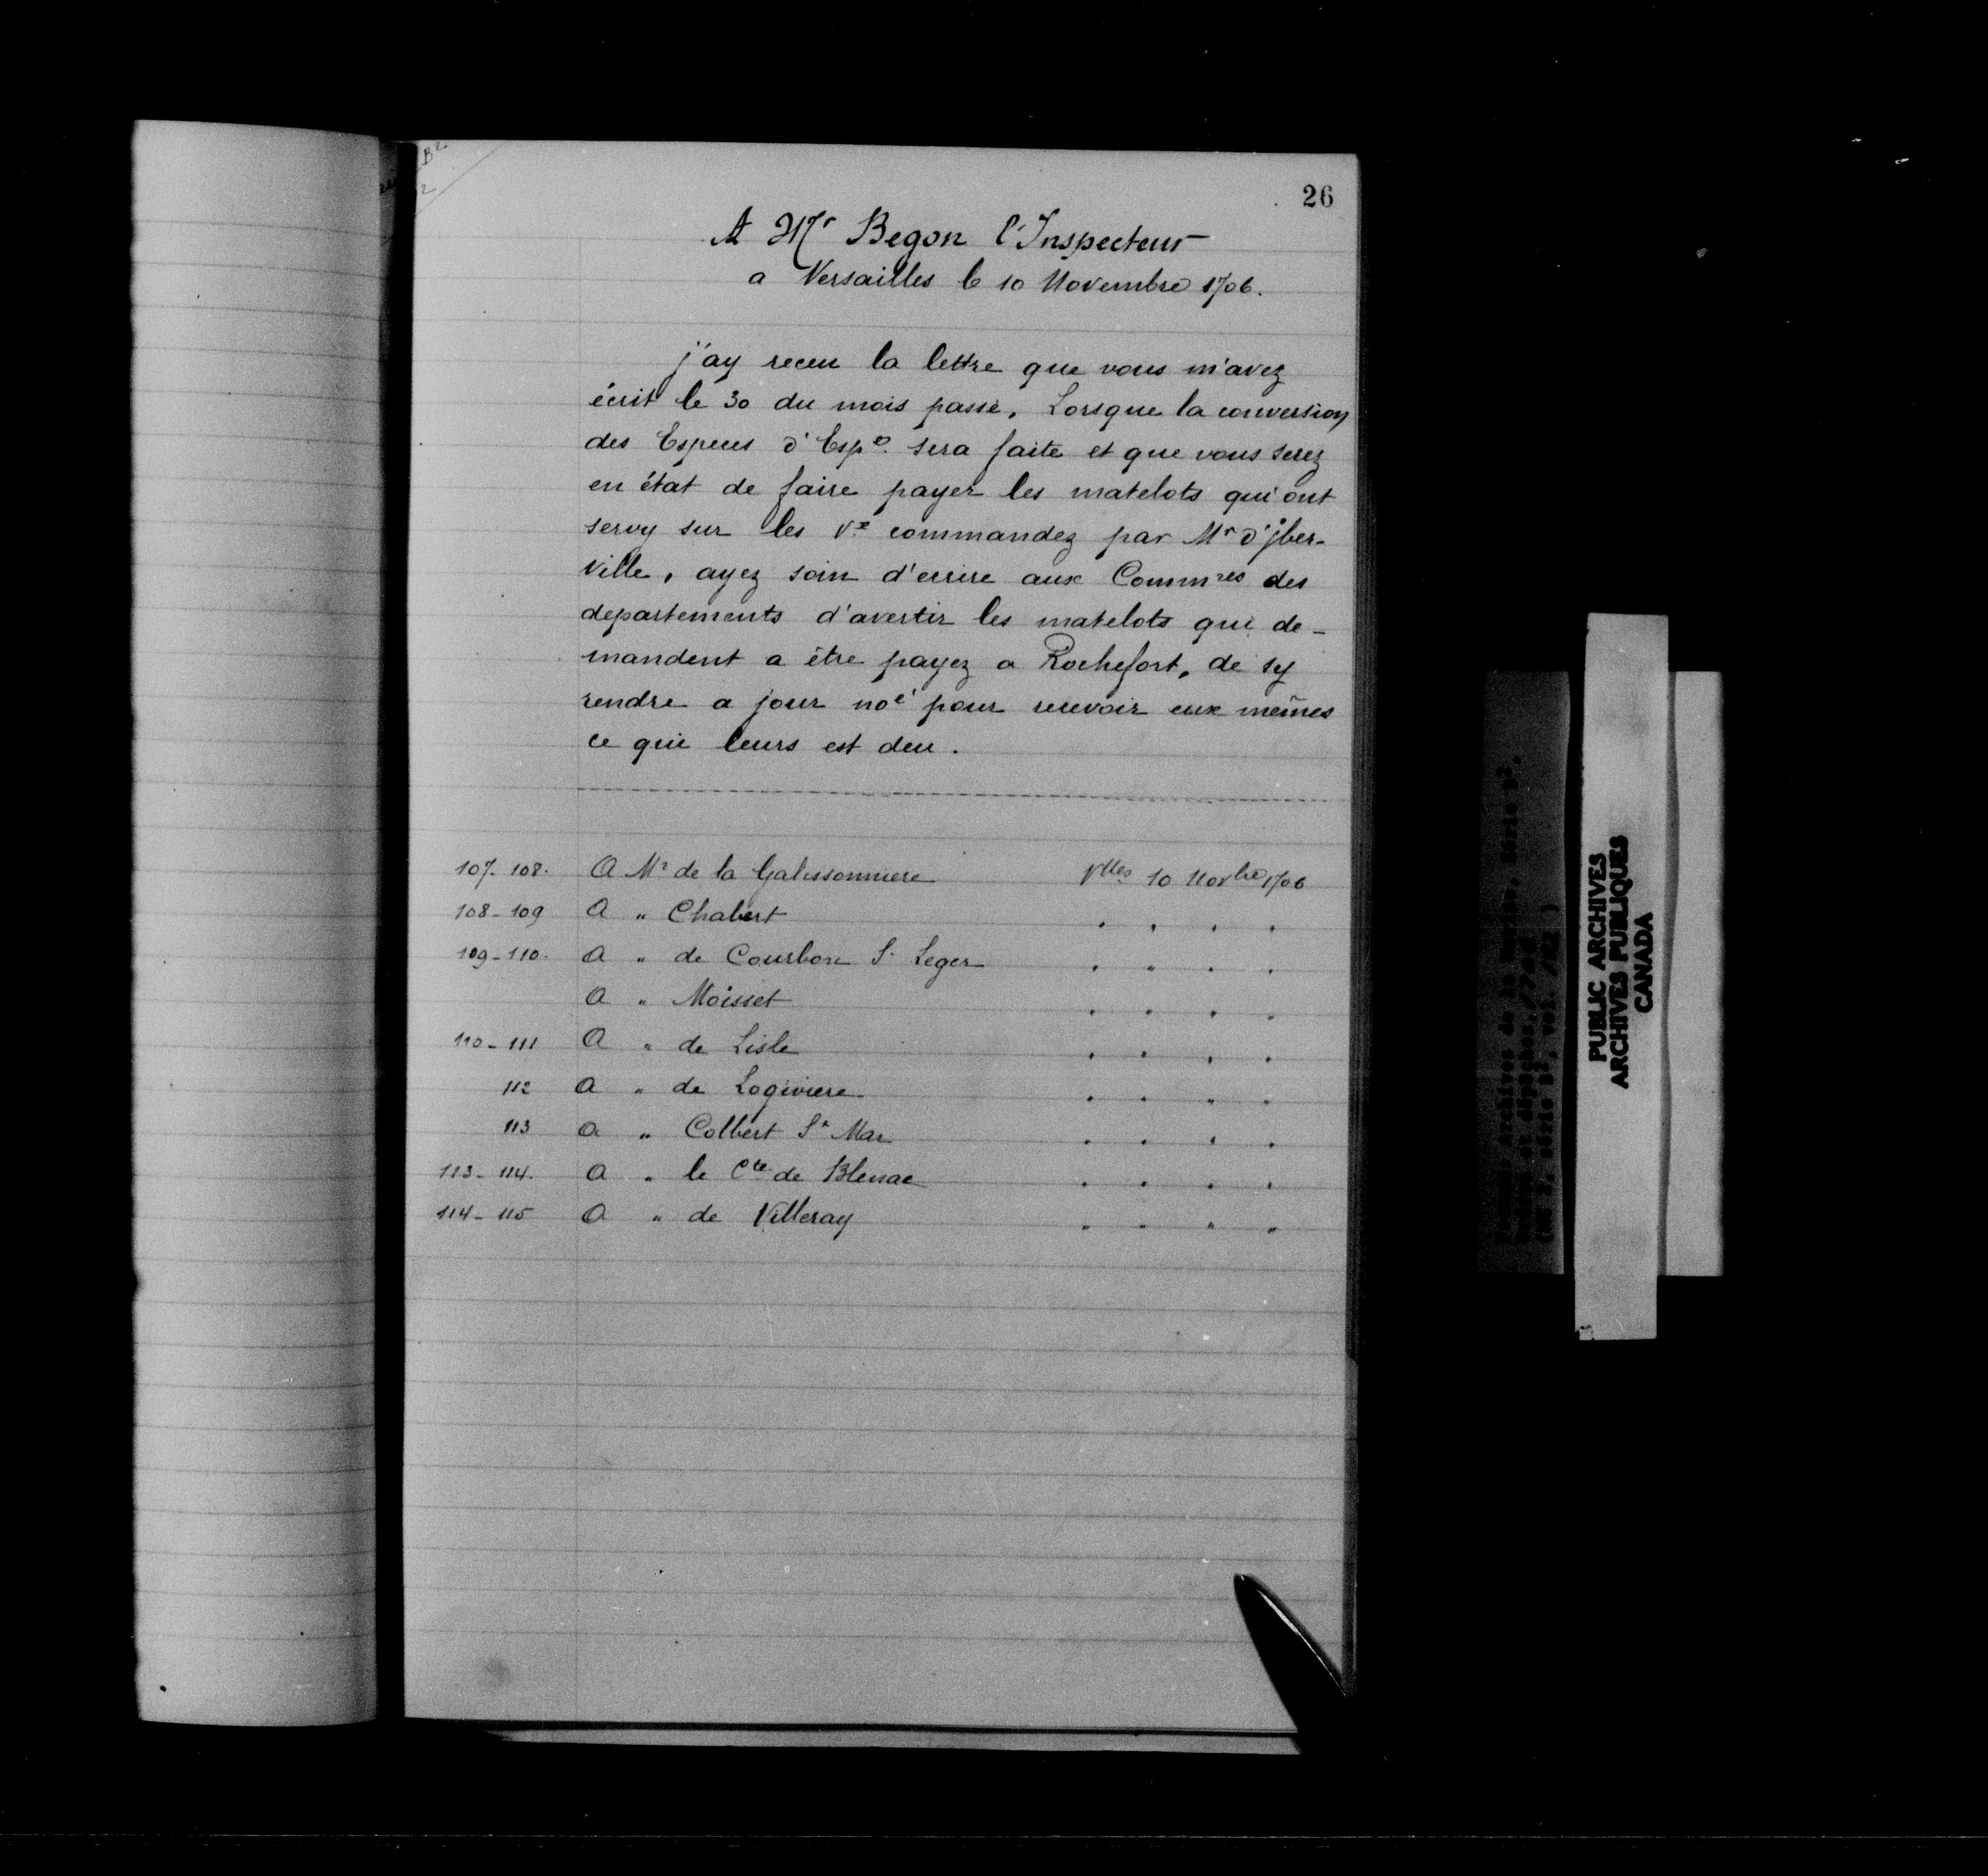 B²
2
26
A Mr Begon l'Inspecteur
a Versailles le 10 Novembre 1706.
j'ay receu la lettre que vous m'avez
écrit le 30 du mois passé. Lorsque la conversion
des Especes d'Espe. sera faite et que vous serez
en état de faire payer les matelots qui ont
servy sur les vx commandez par Mr d'jber-
ville, ayez soin d'ecrire aux Commres des
departements d'avertir les matelots qui de-
mandent a être payez a Rochefort, de sy
rendre a jour noé pour recevoir eux mêmes
ce qui leurs est deu.
107-108. A Mr de la Galissonniere Vlles 10 Novbre 1706
108-109 A " Chabert " " " "
109-110. A " de Courbon S. Leger " " " "
A " Moisset " " " "
110-111 A " de Lisle " " " "
112 A " de Logiviere " " " "
113 A " Colbert St Mar " " " "
113-114. A " le Cte de Blenac " " " "
114-115 A " de Villeray " " " "
PUBLIC ARCHIVES
ARCHIVES PUBLIQUES
CANADA